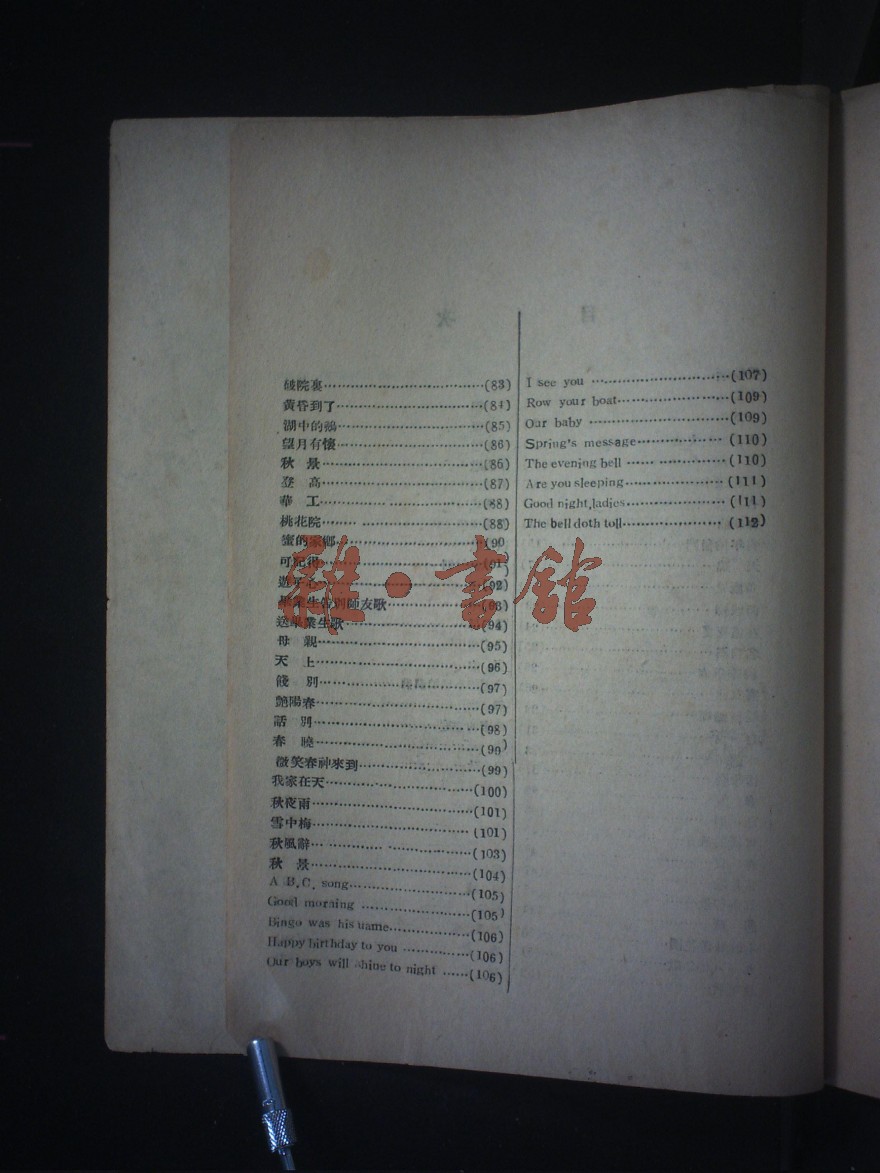 破院裏……(83)
黃昏到了……(84)
湖中的鵝……(85)
望月有懷……(86)
秋 景……(86)
登 高……(87)
華 工……(88)
桃花院……(88)
蜜的家鄉……(90
可記得……(91)
遊子心……(92)
畢業生告別師友歌……(93)
送畢業生歌……(94)
母 親……(95)
天 上……(96)
餞 別……(97)
艷陽春……(97)
話 別……(98)
春 曉……(99)
微笑春神來到……(99)
我家在天……(100)
秋夜雨……(101)
雪中梅……(101)
秋風辭……(103)
秋 景……(104)
A B.C. song……(105)
Good morning ……(105)
Bingo was his uame……(106)
Happy birthday to you ……(106)
Our boys will shine to night ……(106)
I see you ……(107)
Row your boat……(109)
Our baby ……(109)
Spring's message……(110)
The evening bell ……(110)
Are you sleeping……(111)
Good night,ladies……(111)
The bell doth toll……(112)
雜·書館